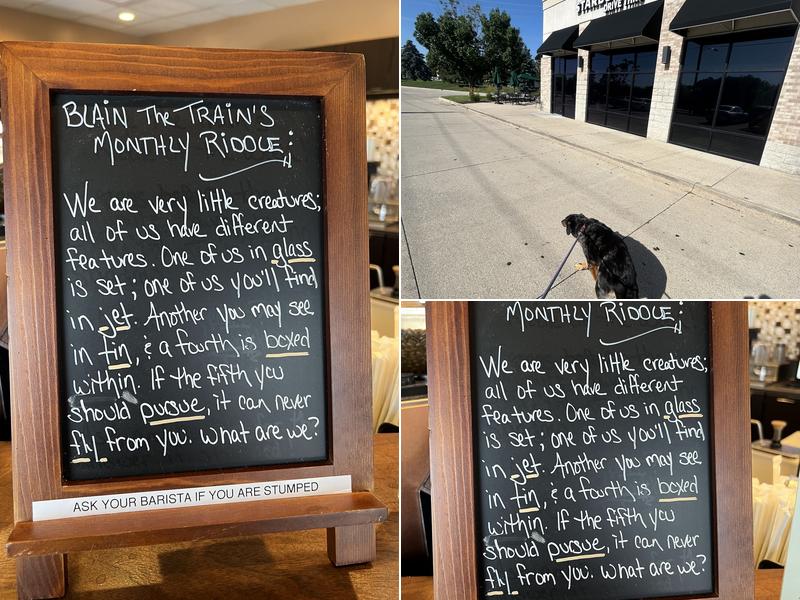 BLAIN THE TRAIN'S
MONTHLY RIDDLE:
We are very little creatures;
all of us have different
features. One of us in glass
is set; one of us you'll find
in jet. Another you may see
in tin, & a fourth is boxed
within. If the fifth you
should pursue, it can never
fly from you. What are we?
ASK YOUR BARISTA IF YOU ARE STUMPED
DRIVE THRU
MONTHLY RIDDLE:
We are very little creatures;
all of us have different
features. One of us in glass
is set; one of us you'll find
in jet. Another you may see
in tin, & a fourth is boxed
within. If the fifth you
should pursue, it can never
fly from you. What are we?